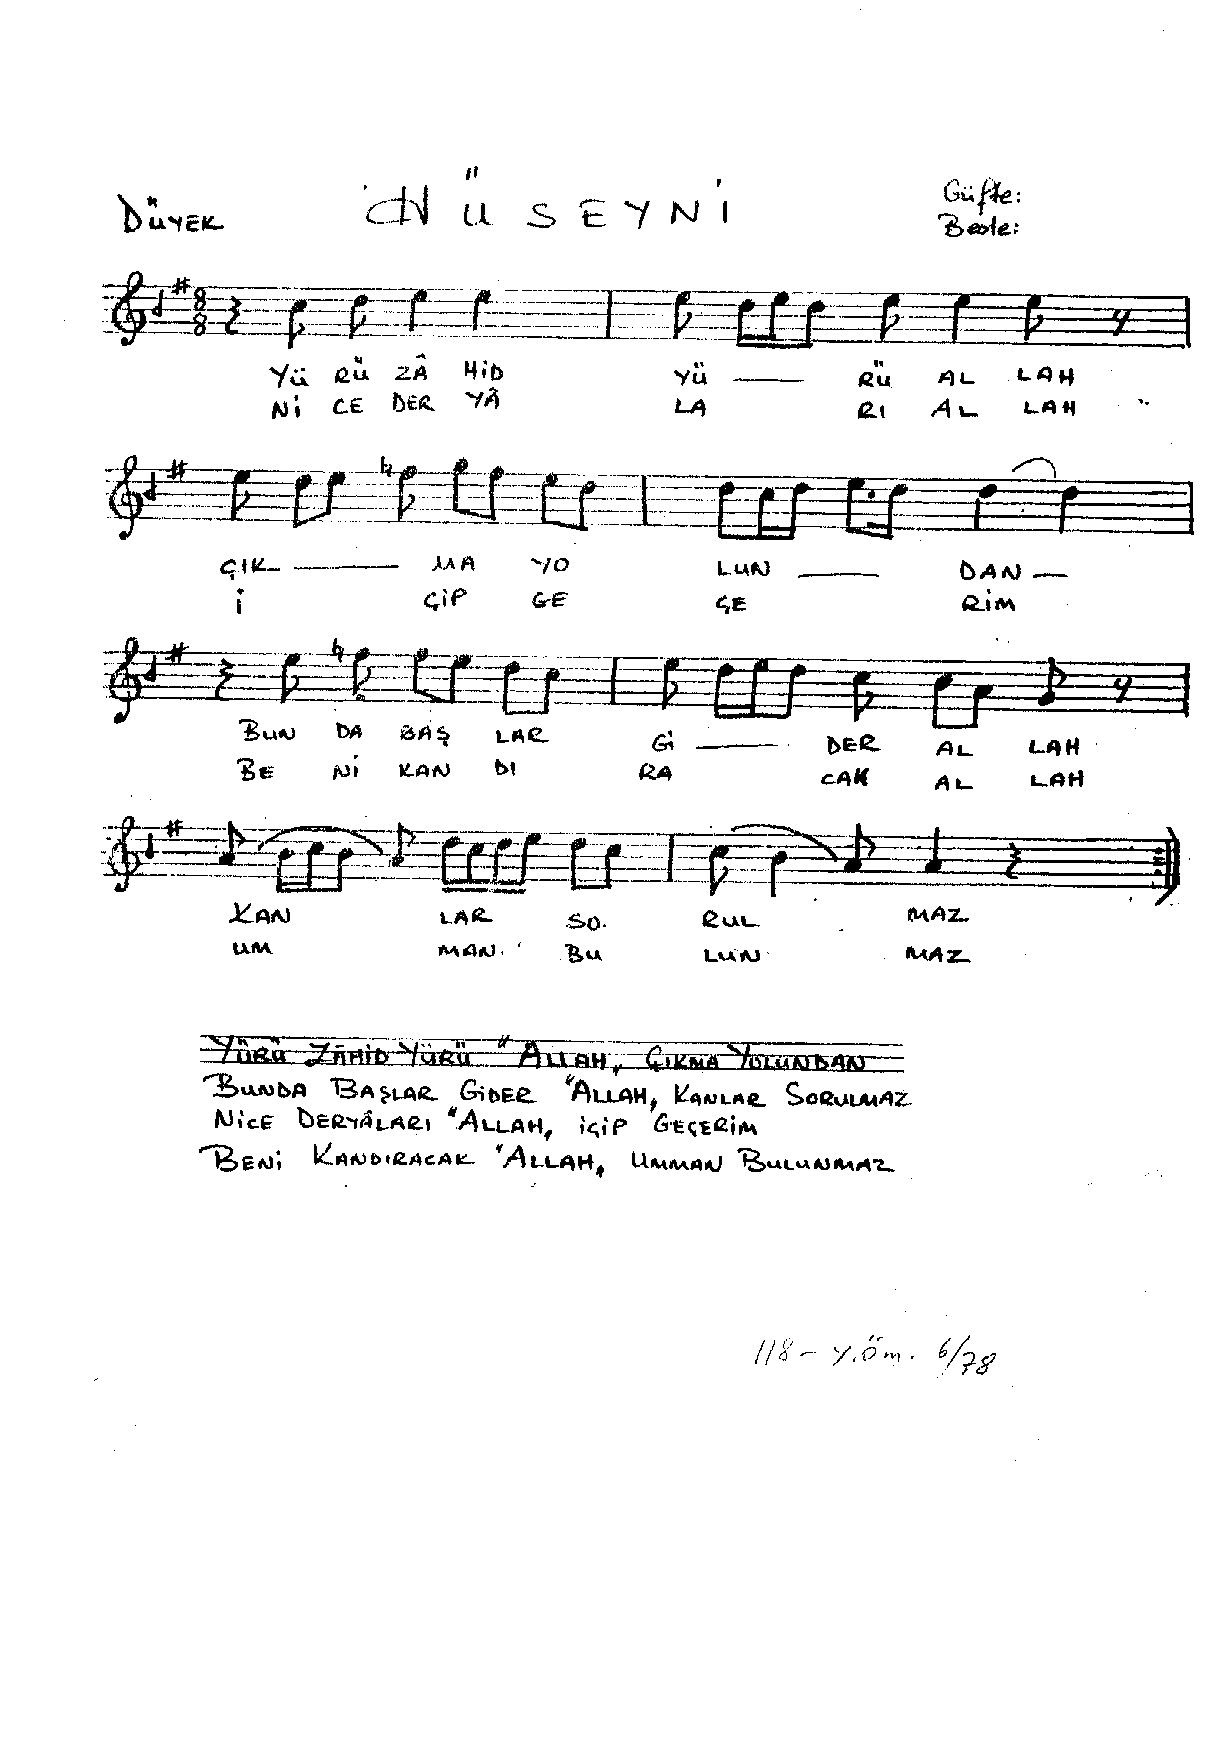 DÜYEK HÜSEYNİ Güfte:
Beste:
8
8
YÜ RÜ ZÂ HİD YÜ —— RÜ AL LAH
Nİ CE DER YÂ LA RI AL LAH "
ÇIK —— MA YO LUN —— DAN —
İ ÇİP GE ÇE RİM
BUN DA BAŞ LAR Gİ —— DER AL LAH
BE Nİ KAN DI RA CAK AL LAH
KAN LAR SO. RUL MAZ
UM MAN BU LUN MAZ
YÜRÜ ZÂHİD YÜRÜ "ALLAH, ÇIKMA YOLUNDAN
BUNDA BAŞLAR GİDER "ALLAH, KANLAR SORULMAZ
NİCE DERYÂLARI "ALLAH, İÇİP GEÇERİM
BENİ KANDIRACAK "ALLAH, UMMAN BULUNMAZ
118 - Y.Öm. 6/78